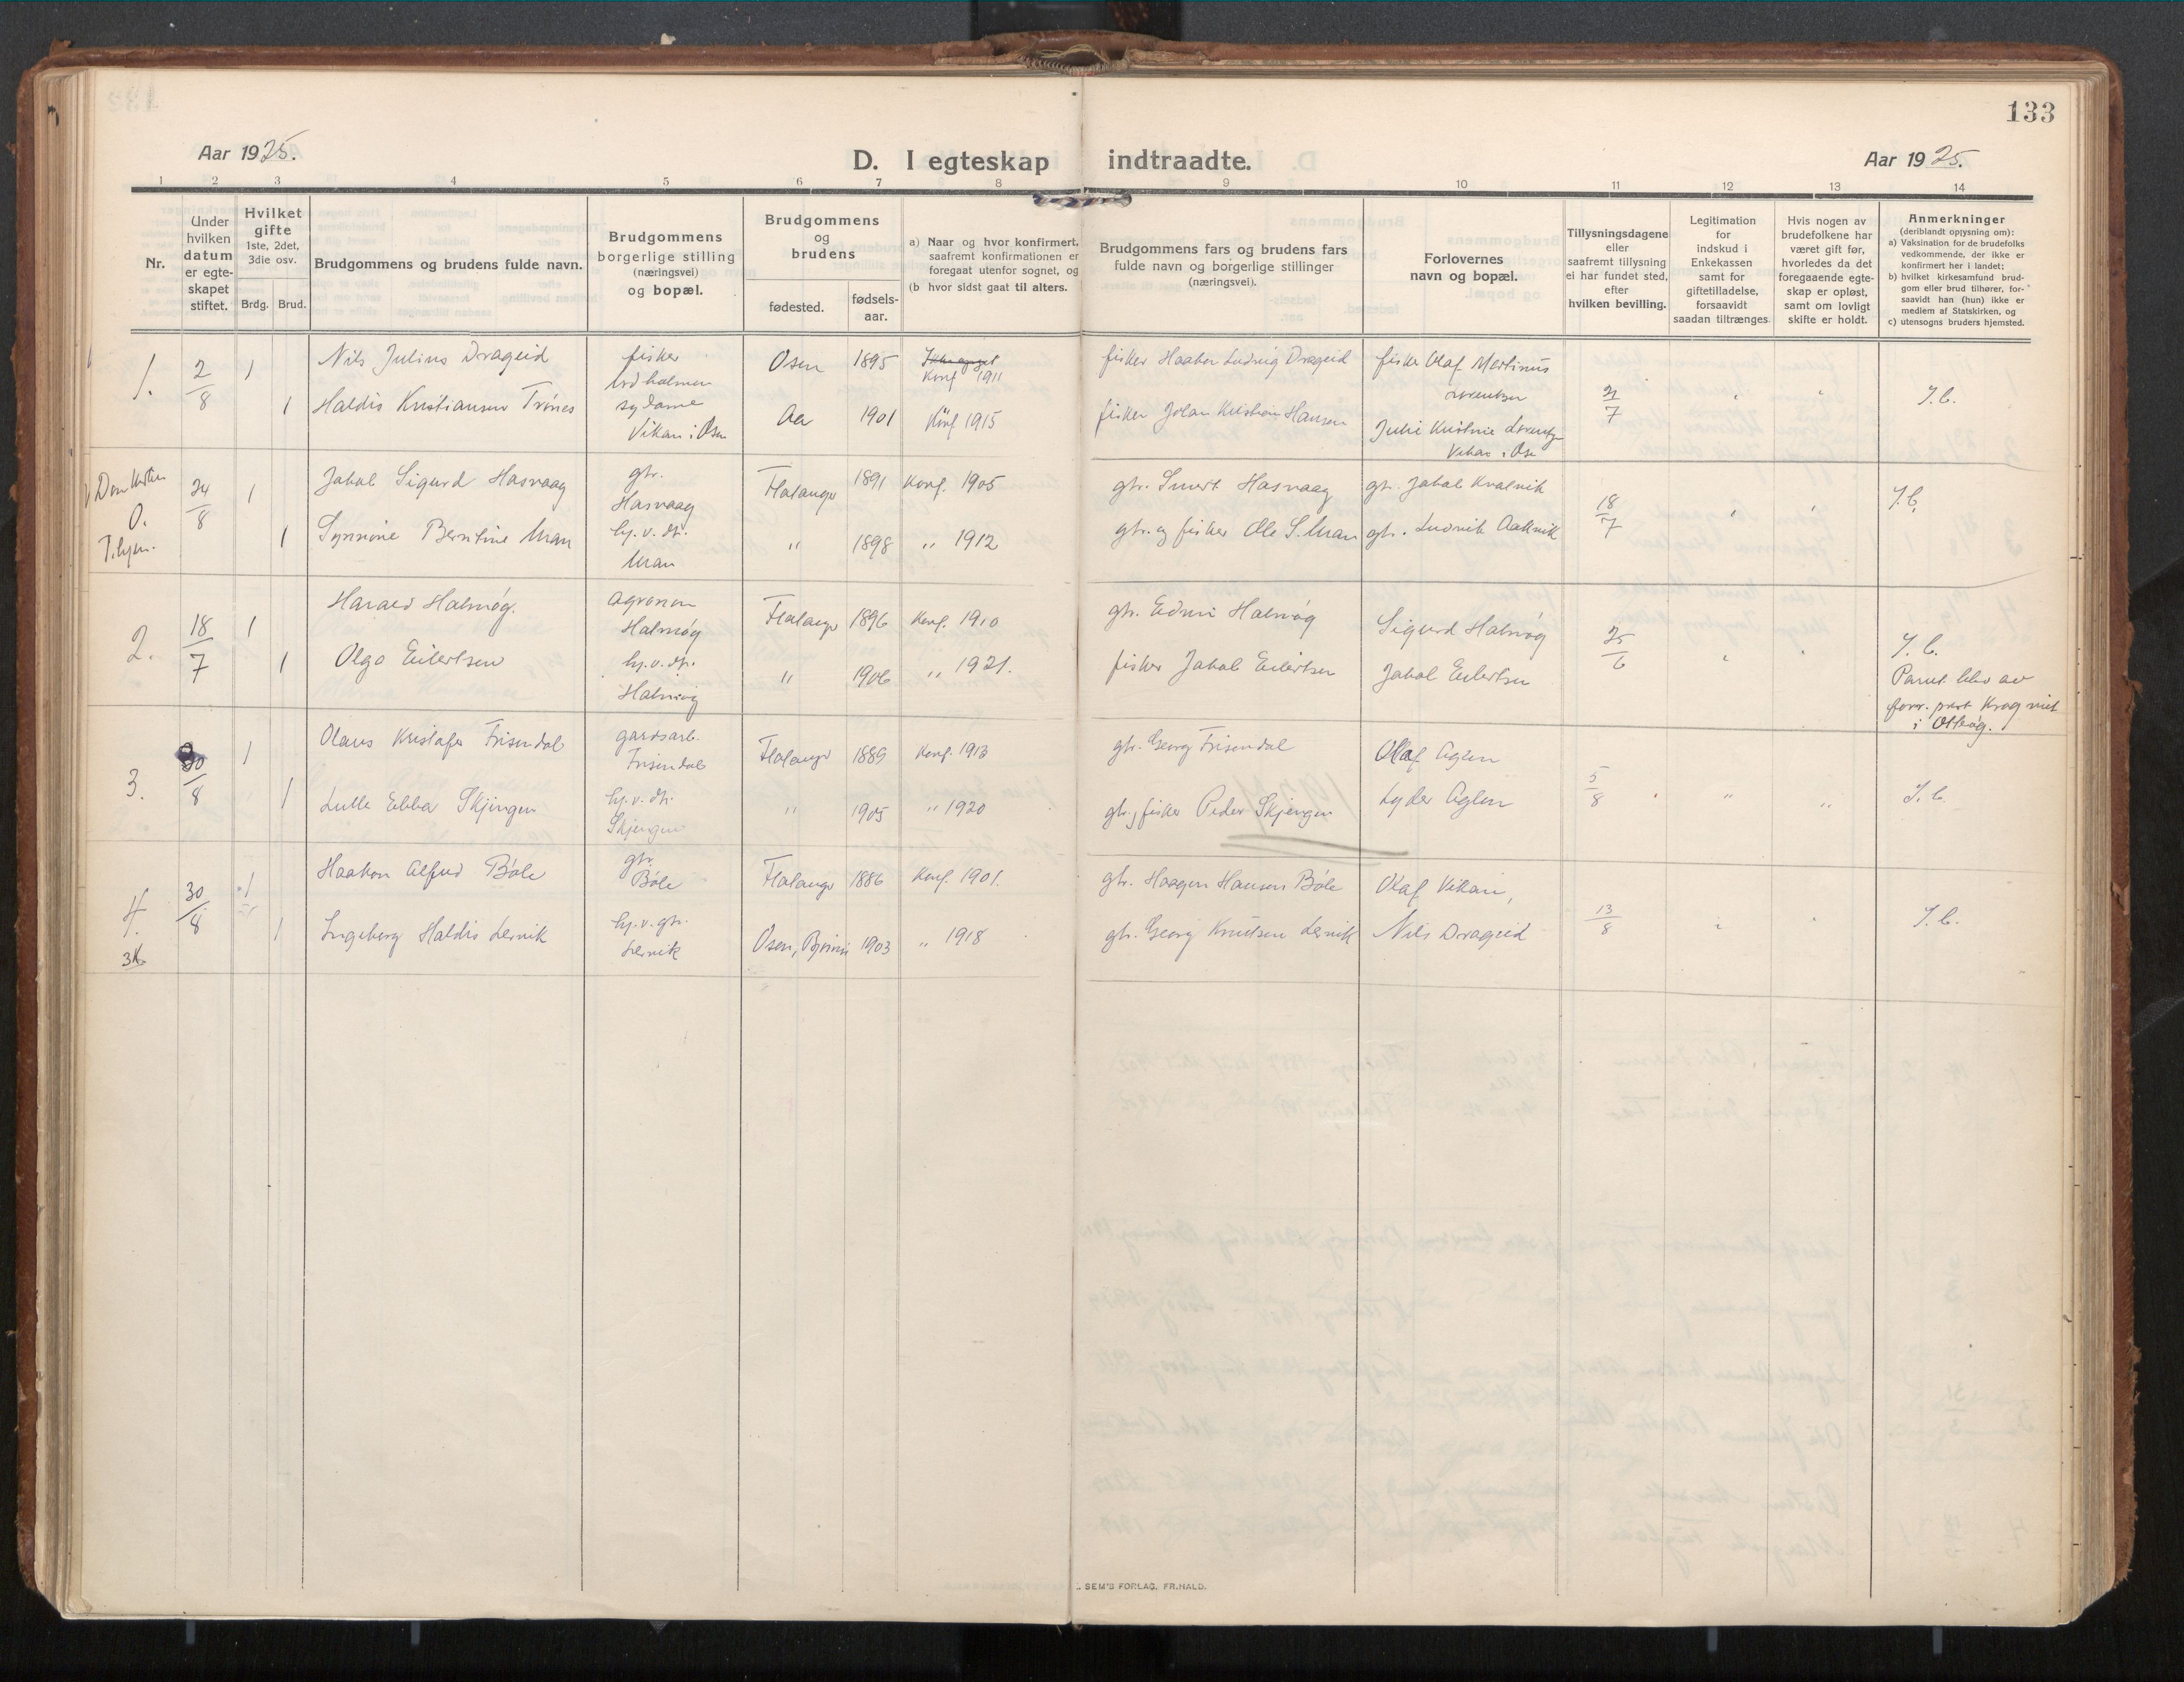 133
Aar 1925.
D. I egteskap indtraadte.
Aar 1925.
1 2 3 4 5 6 7 8 9 10 11 12 13 14
Nr.
Under hvilken datum er egteskapet stiftet.
Hvilket gifte 1ste, 2det, 3die osv.
Brdg. Brud.
Brudgommens og brudens fulde navn.
Brudgommens borgerlige stilling (næringsvei) og bopæl.
Brudgommens og brudens
fødested.
fødsels-aar.
a) Naar og hvor konfirmert, saafremt konfirmationen er foregaat utenfor sognet, og
(b hvor sidst gaat til alters.
Brudgommens fars og brudens fars fulde navn og borgerlige stillinger (næringsvei).
Forlovernes navn og bopæl.
Tillysningsdagene eller saafremt tillysning ei har fundet sted, efter hvilken bevilling.
Legitimation for indskud i Enkekassen samt for giftetilladelse, forsaavidt saadan tiltrænges
Hvis nogen av brudefolkene har været gift før, hvorledes da det foregaaende egteskap er opløst, samt om lovligt skifte er holdt.
Anmerkninger (deriblandt opjysning om):
a) Vaksination for de brudefolks vedkommende, der ikke er konfirmert her i landet;
b) hvilket kirkesamfund brudgom eller brud tilhører, forsaavidt han (hun) ikke er medlem af Statskirken, og
c) utensogns bruders hjemsted.
1. 2/8 1 Nils Julius Drageid fisker Osen 1895 Konf 1911 fisker Haakon Ludvig Drageid fisker Olaf Martinus Lorentsen 21/7 " " I.b.
1 Haldis Kristiansen Trønes sydame Vikan i Osen Aa 1901 Konf 1915 fisker Johan Kristian Hansen Julie Kristine Lorentzen Vikan i Osen
O. 24/8 1 Jakob Sigurd Hasvaag gbr. Hasvaag Flatanger 1891 Konf. 1905 gbr. Hasvaag gbr. Jakob Kvalvik 18/7 " " I.b.
1 Synnöve Berntine Uran hj. v. dtr. Uran " 1898 " 1912 gbr. og fisker Ole S. Uran gbr. Ludvik Aakvik
2. 18/7 1 Harald Halmøy. Agronom Halmøy Flatanger 1896 Konf. 1910 gbr. Edvin Halmøy Sigurd Halmøy 25/6 " " I.b.
1 Olga Eilertsen hj. v. dtr. Halmøy " 1906 " 1921. fisker Jakob Eilertsen Jakob Eilertsen
Paret blev av
forr. prest Krog viet
i Otterøy.
3. 30/8 1 Olaus Kristofer Frisendal gardsarb. Frisendal Flatanger 1889 Konf. 1913 gbr. Georg Frisendal Olaf Aglen 5/8 " " I.b.
1 Lulle Ebba Skjingen hj. v. dtr. Skjengen " 1905 " 1920 gbr., fisker Peder Skjengen Lyder Aglen
4. 30/8 1 Haakon Alfred Bøle gbr. Bøle Flatanger 1886 Konf. 1901. gbr. Haagen Hansen Bøle Olaf Vikan, 13/8 " " I.b.
1 Ingeborg Haldis Lervik hj. v. gbr. Lervik Osen, 1903 " 1918 gbr. Georg Knutsen Lervik Nils Drageid
SEM'S FORLAG, FR.HALD.